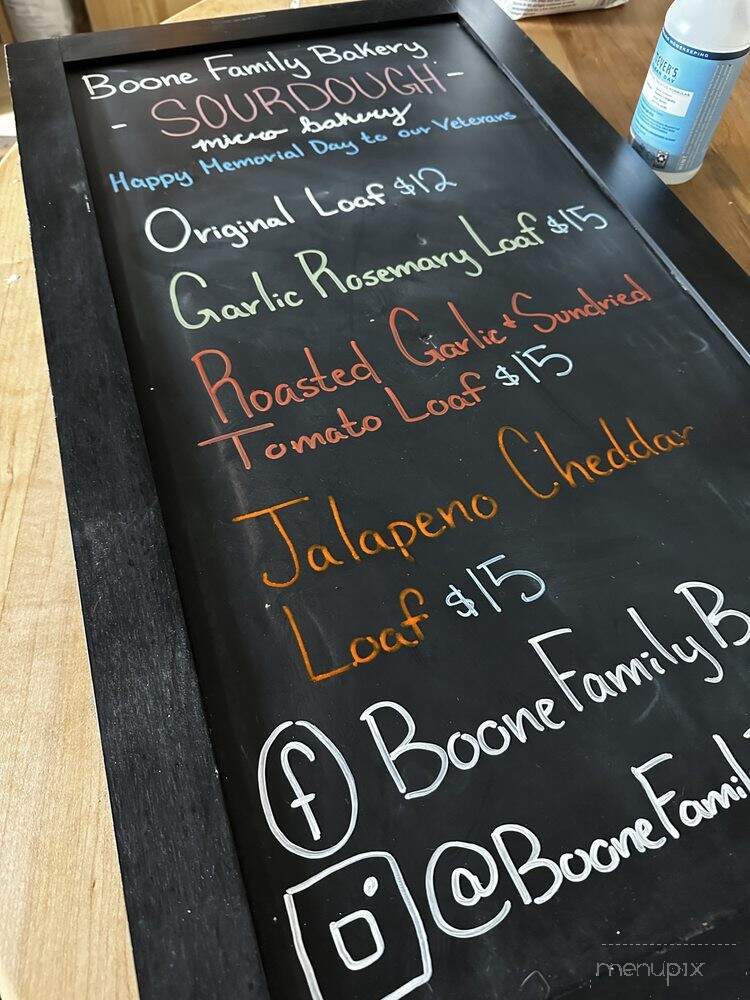 Boone Family Bakery
- SOURDOUGH -
micro bakery
Happy Memorial Day to our Veterans
Original Loaf $12
Garlic Rosemary Loaf $15
Roasted Garlic & Sundried
Tomato Loaf $15
Jalapeno Cheddar
Loaf $15
f BooneFamilyB
@BooneFamil
menupix